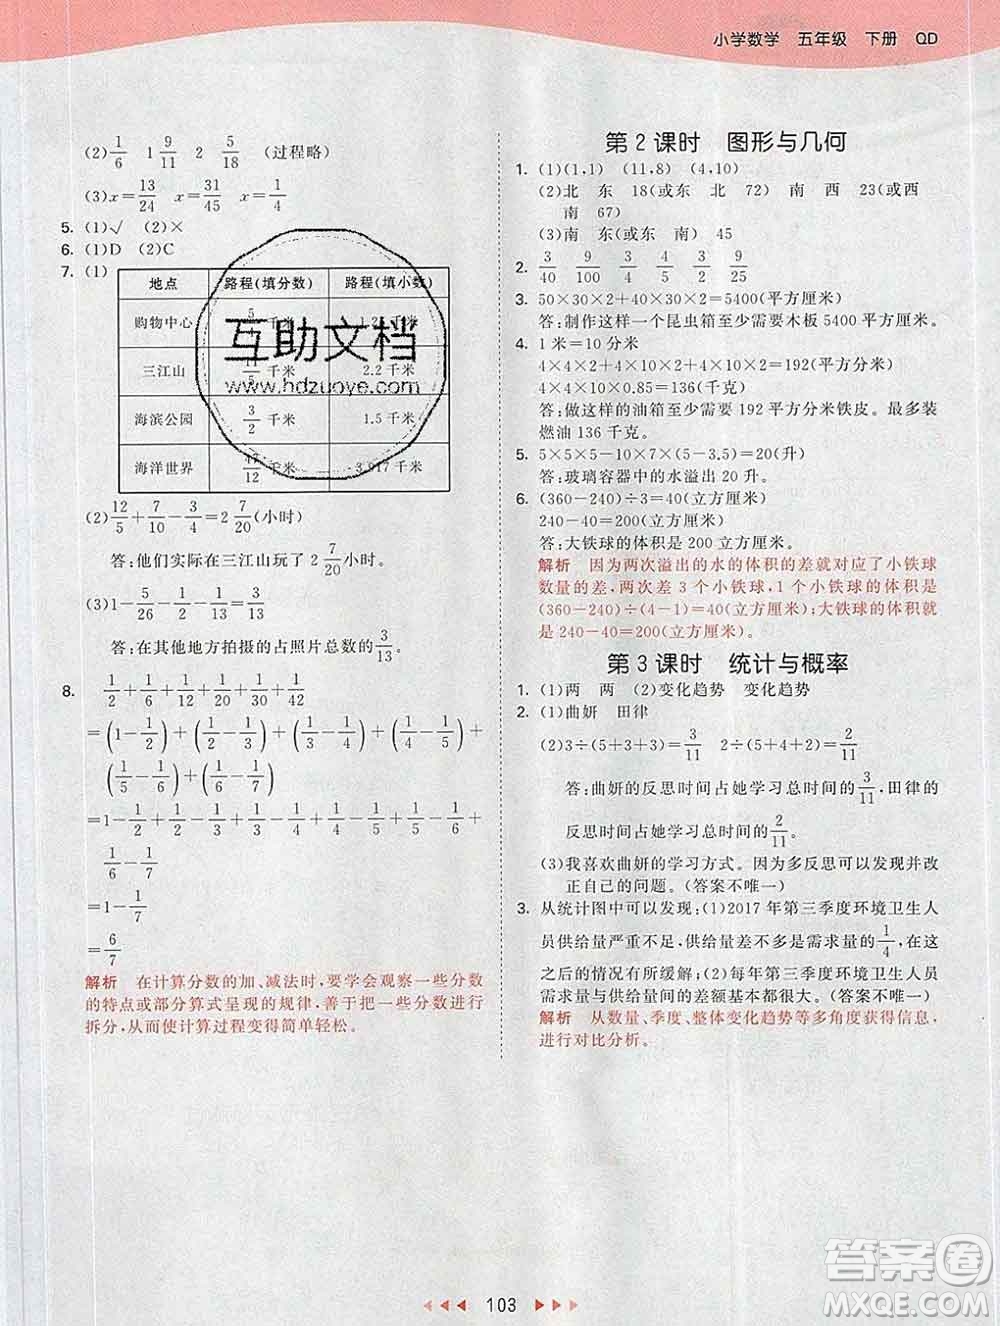 小学数学 五年级 下册 QD
(2)1/6 1 9/11 2 5/18 (过程略)
(3)x=13/24 x=31/45 x=1/4
5. (1)√ (2)×
6. (1)D (2)C
7. (1)
地点 路程(填分数) 路程(填小数)
购物中心 千米
三江山 千米 2.2 千米
海滨公园 3/2 千米 1.5 千米
海洋世界 47/12 千米 3.917 千米
互助文档
www.hdzuoye.com
(2)12/5+7/10-3/4=2 7/20(小时)
答:他们实际在三江山玩了 2 7/20 小时。
(3)1-5/26-1/2-1/13=3/13
答:在其他地方拍摄的占照片总数的3/13。
8. 1/2+1/6+1/12+1/20+1/30+1/42
=(1-1/2)+(1/2-1/3)+(1/3-1/4)+(1/4-1/5)+
(1/5-1/6)+(1/6-1/7)
=1-1/2+1/2-1/3+1/3-1/4+1/4-1/5+1/5-1/6+
1/6-1/7
=1-1/7
=6/7
解析 在计算分数的加、减法时,要学会观察一些分数
的特点或部分算式呈现的规律,善于把一些分数进行
拆分,从而使计算过程变得简单轻松。
第 2 课时 图形与几何
1. (1)(1,1) (11,8) (4,10)
(2)北 东 18(或东 北 72) 南 西 23(或西
南 67)
(3)南 东(或东 南) 45
2. 3/40 9/100 3/4 4/5 3/2
3. 50×30×2+40×30×2=5400(平方厘米)
答:制作这样一个昆虫箱至少需要木板 5400 平方厘米。
4. 1 米=10 分米
4×4×2+4×10×2+4×10×2=192(平方分米)
4×4×10×0.85=136(千克)
答:做这样的油箱至少需要 192 平方分米铁皮。最多装
燃油 136 千克。
5. 5×5×5-10×5×(5-3.5)=20(升)
答:玻璃容器中的水溢出 20 升。
6. (360-240)÷3=40(立方厘米)
240-40=200(立方厘米)
答:大铁球的体积是 200 立方厘米。
解析 因为两次溢出的水的体积的差就对应了小铁球
数量的差,两次差 3 个小铁球,1 个小铁球的体积是
(360-240)÷(4-1)=40(立方厘米);大铁球的体积就
是 240-40=200(立方厘米)。
第 3 课时 统计与概率
1. (1)两 两 (2)变化趋势 变化趋势
2. (1)曲妍 田律
(2)3÷(5+3+3)=3/11 2÷(5+4+2)=2/11
答:曲妍的反思时间占她学习总时间的3/11,田律的
反思时间占她学习总时间的2/11。
(3)我喜欢曲妍的学习方式。因为多反思可以发现并改
正自己的问题。(答案不唯一)
3. 从统计图中可以发现:(1)2017 年第三季度环境卫生人
员供给量严重不足,供给量差不多是需求量的1/4,在这
之后的情况有所缓解;(2)每年第三季度环境卫生人员
需求量与供给量间的差额基本都很大。(答案不唯一)
解析 从数量、季度、整体变化趋势等多角度获得信息,
进行对比分析。
103
答案圈
MXQE.COM